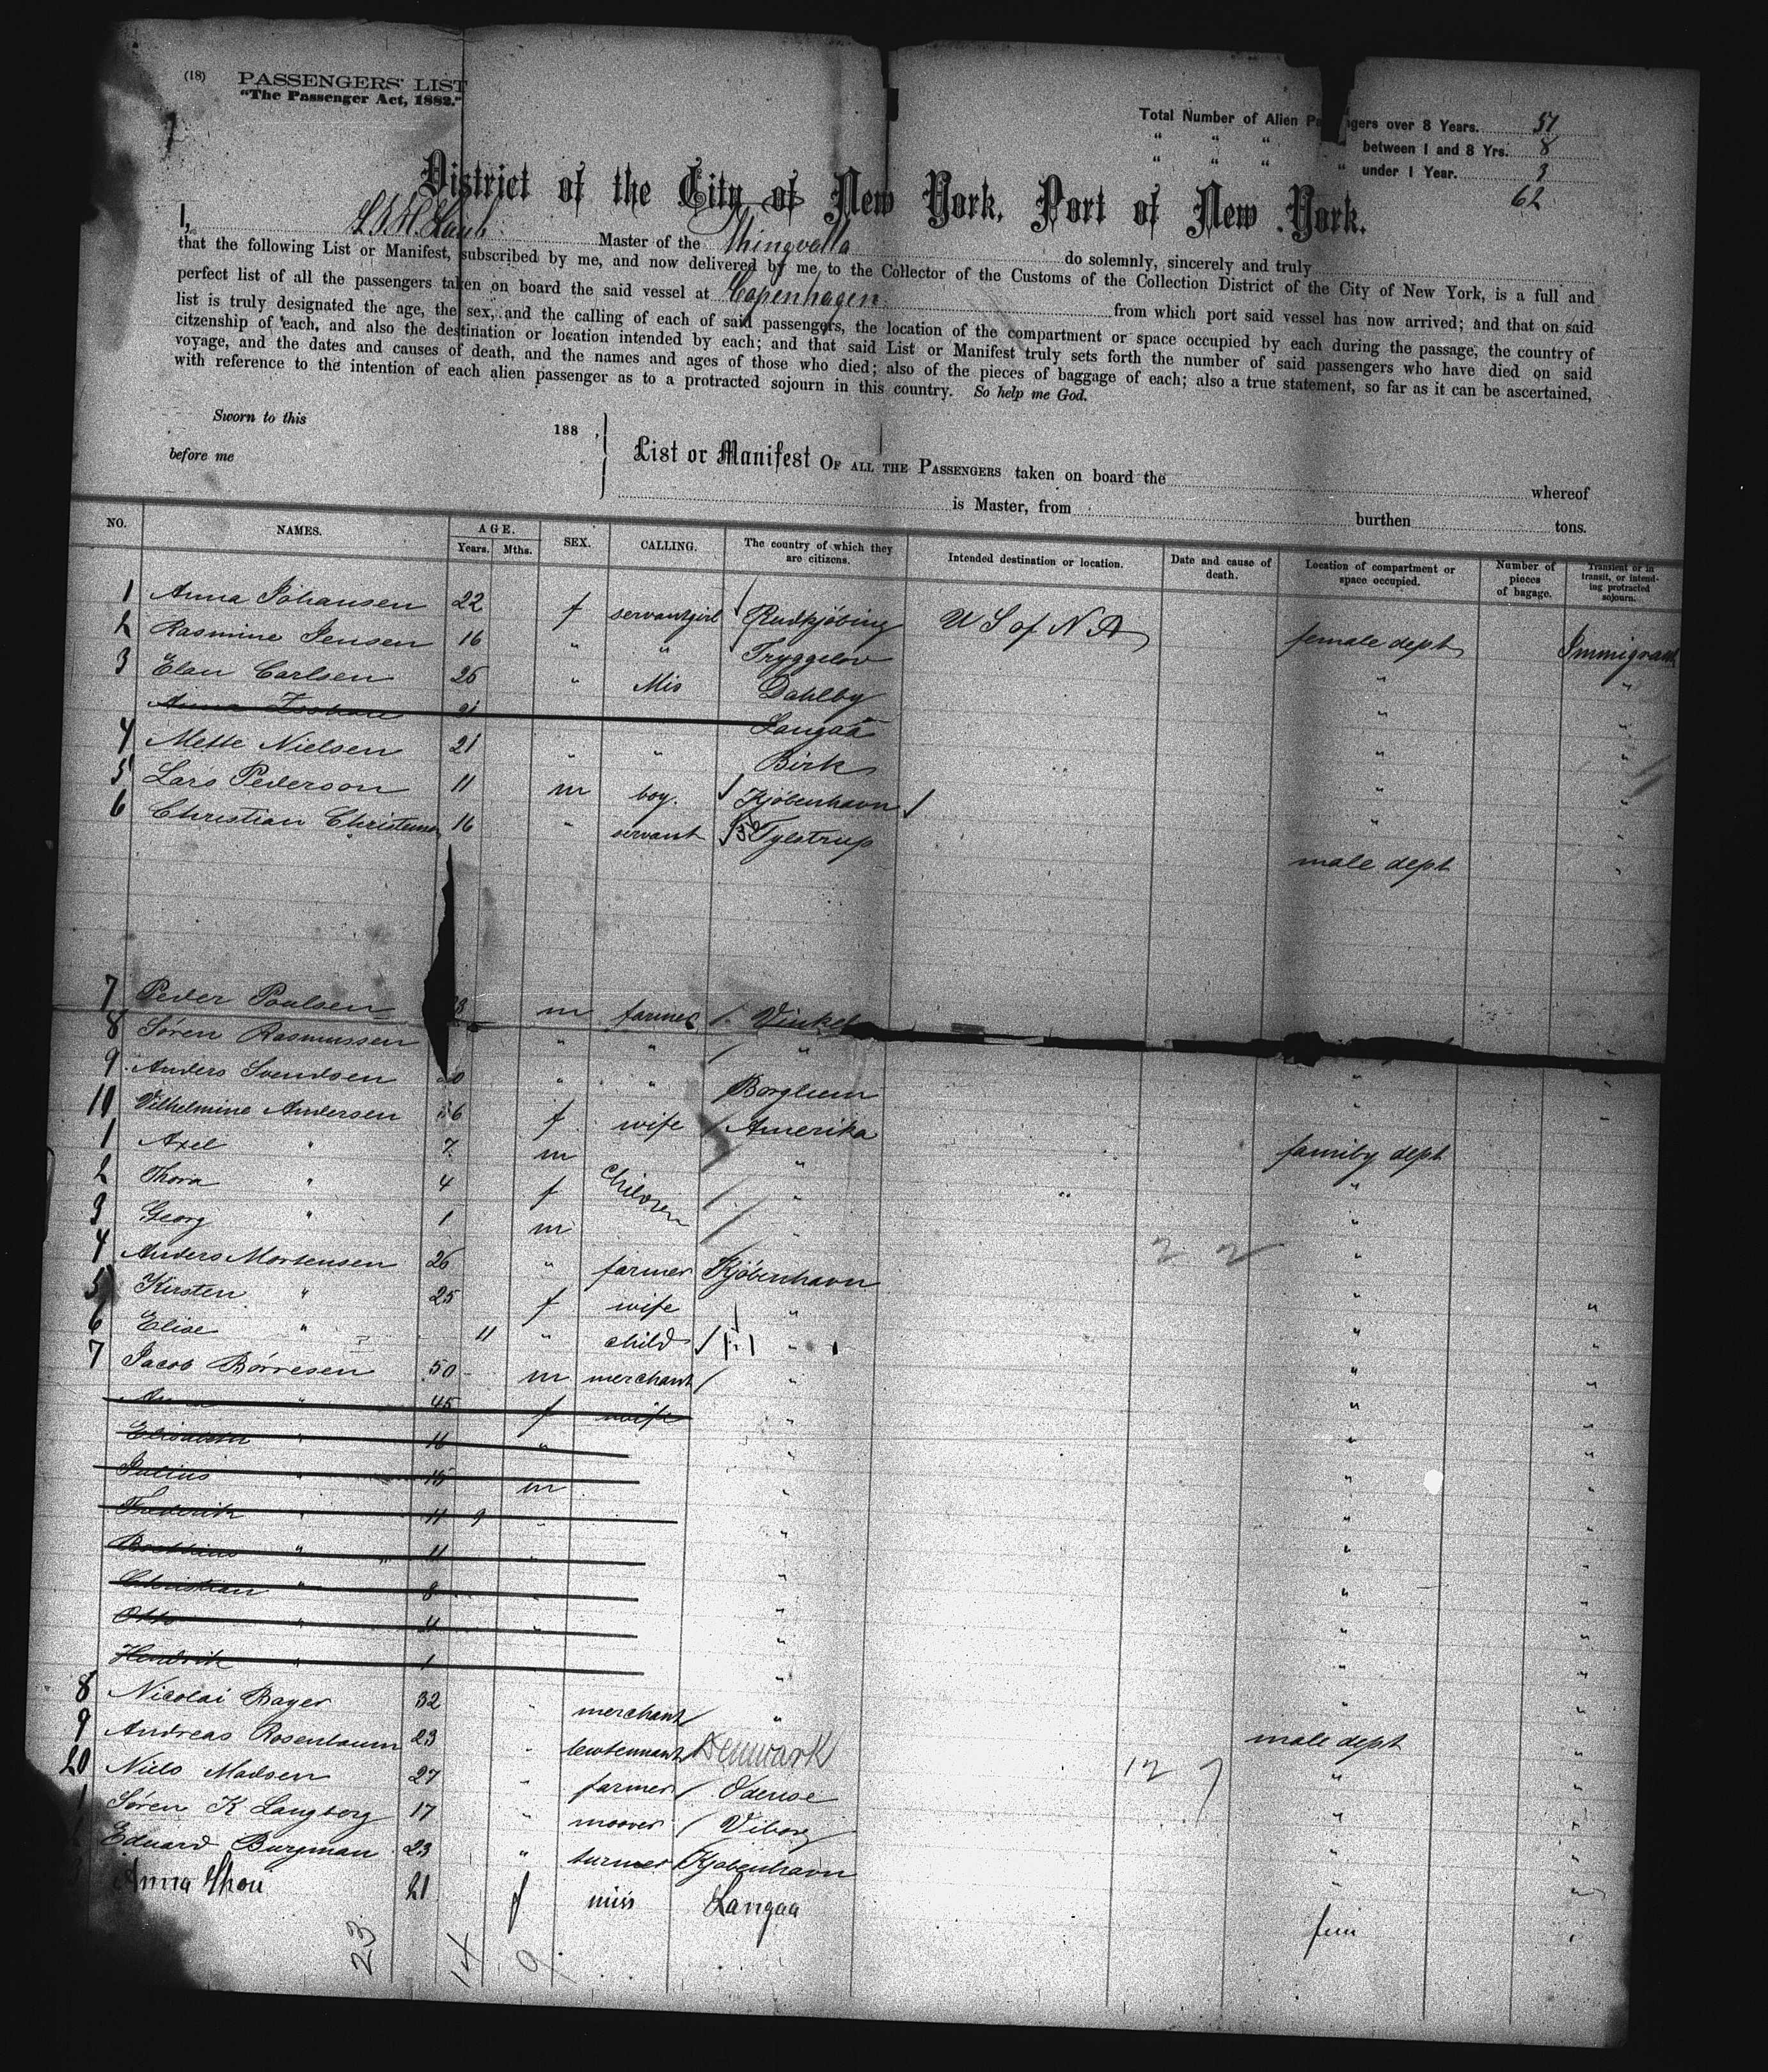 (18) PASSENGERS' LIST
"The Passenger Act, 1882."
Total Number of Alien Pa ngers over 8 Years. 51
" " " between 1 and 8 Yrs. 8
" " " " under 1 Year. 3
62
District of the City of New York, Port of New York.
I, Master of the Thingvalla do solemnly, sincerely and truly
that the following List or Manifest, subscribed by me, and now delivered by me to the Collector of the Customs of the Collection District of the City of New York, is a full and
perfect list of all the passengers taken on board the said vessel at Copenhagen from which port said vessel has now arrived; and that on said
list is truly designated the age, the sex, and the calling of each of said passengers, the location of the compartment or space occupied by each during the passage, the country of
citzenship of each, and also the destination or location intended by each; and that said List or Manifest truly sets forth the number of said passengers who have died on said
voyage, and the dates and causes of death, and the names and ages of those who died; also of the pieces of baggage of each; also a true statement, so far as it can be ascertained,
with reference to the intention of each alien passenger as to a protracted sojourn in this country. So help me God.
Sworn to this 188 ,
before me
List or Manifest OF ALL THE PASSENGERS taken on board the whereof
is Master, from burthen tons.
NO. NAMES. AGE. Years. Mths. SEX. CALLING. The country of which they are citizens. Intended destination or location. Date and cause of death. Location of compartment or space occupied. Number of pieces of bagage. Transient or in transit, or intending protracted sojourn.
1 Anna Johansen 22 f servantgirl Rudkjöbing U S of N A female dept Immigrant
2 Rasmine Jensen 16 " " Tryggelov " "
3 Elan Carlsen 25 " Mis Dahlby " "
Anna 21 Langaa " "
4 Mette Nielsen 21 " " Birk " "
5 Lars Pederson 11 m boy. Kjöbenhavn " "
6 Christian Christensen 16 " servant Tylstrup male dept "
7 Peder Poulsen m farmer Vinkel
8 Sören Rasmussen " " " "
9 Anders Svendsen " " Borglum "
10 Vilhelmine Andersen 36 f wife Amerika family dept
1 Axel " 7 m Children " "
2 Thora " 4 f " " "
3 Georg " 1 m " "
4 Anders Mortensen 26 " farmer Kjöbenhavn "
5 Kirsten " 25 f wife " " "
6 Elise " 11 " child " " "
7 Jacob Börresen 50 m merchant " " "
Anna " 45 f wife " " "
Elisabeth " 16 " " " "
Julius " 15 m " " "
Frederik " 11 9 " " " "
" 11 " " " "
Christian " 8 " " " "
Otto " 4 " " " "
Hendrik " 1 " " "
8 Nicolai Bayer 32 " merchant " male dept "
9 Andreas Rosenbaum 23 " lewtennant Denmark " "
20 Niels Madsen 27 " farmer Odense " "
1 Sören K Langborg 17 " moover Viborg " "
2 Eduard Burgman 23 " turner Kjobenhavn " "
3 Anna Thou 21 f miss Langaa fem "
23 14 9